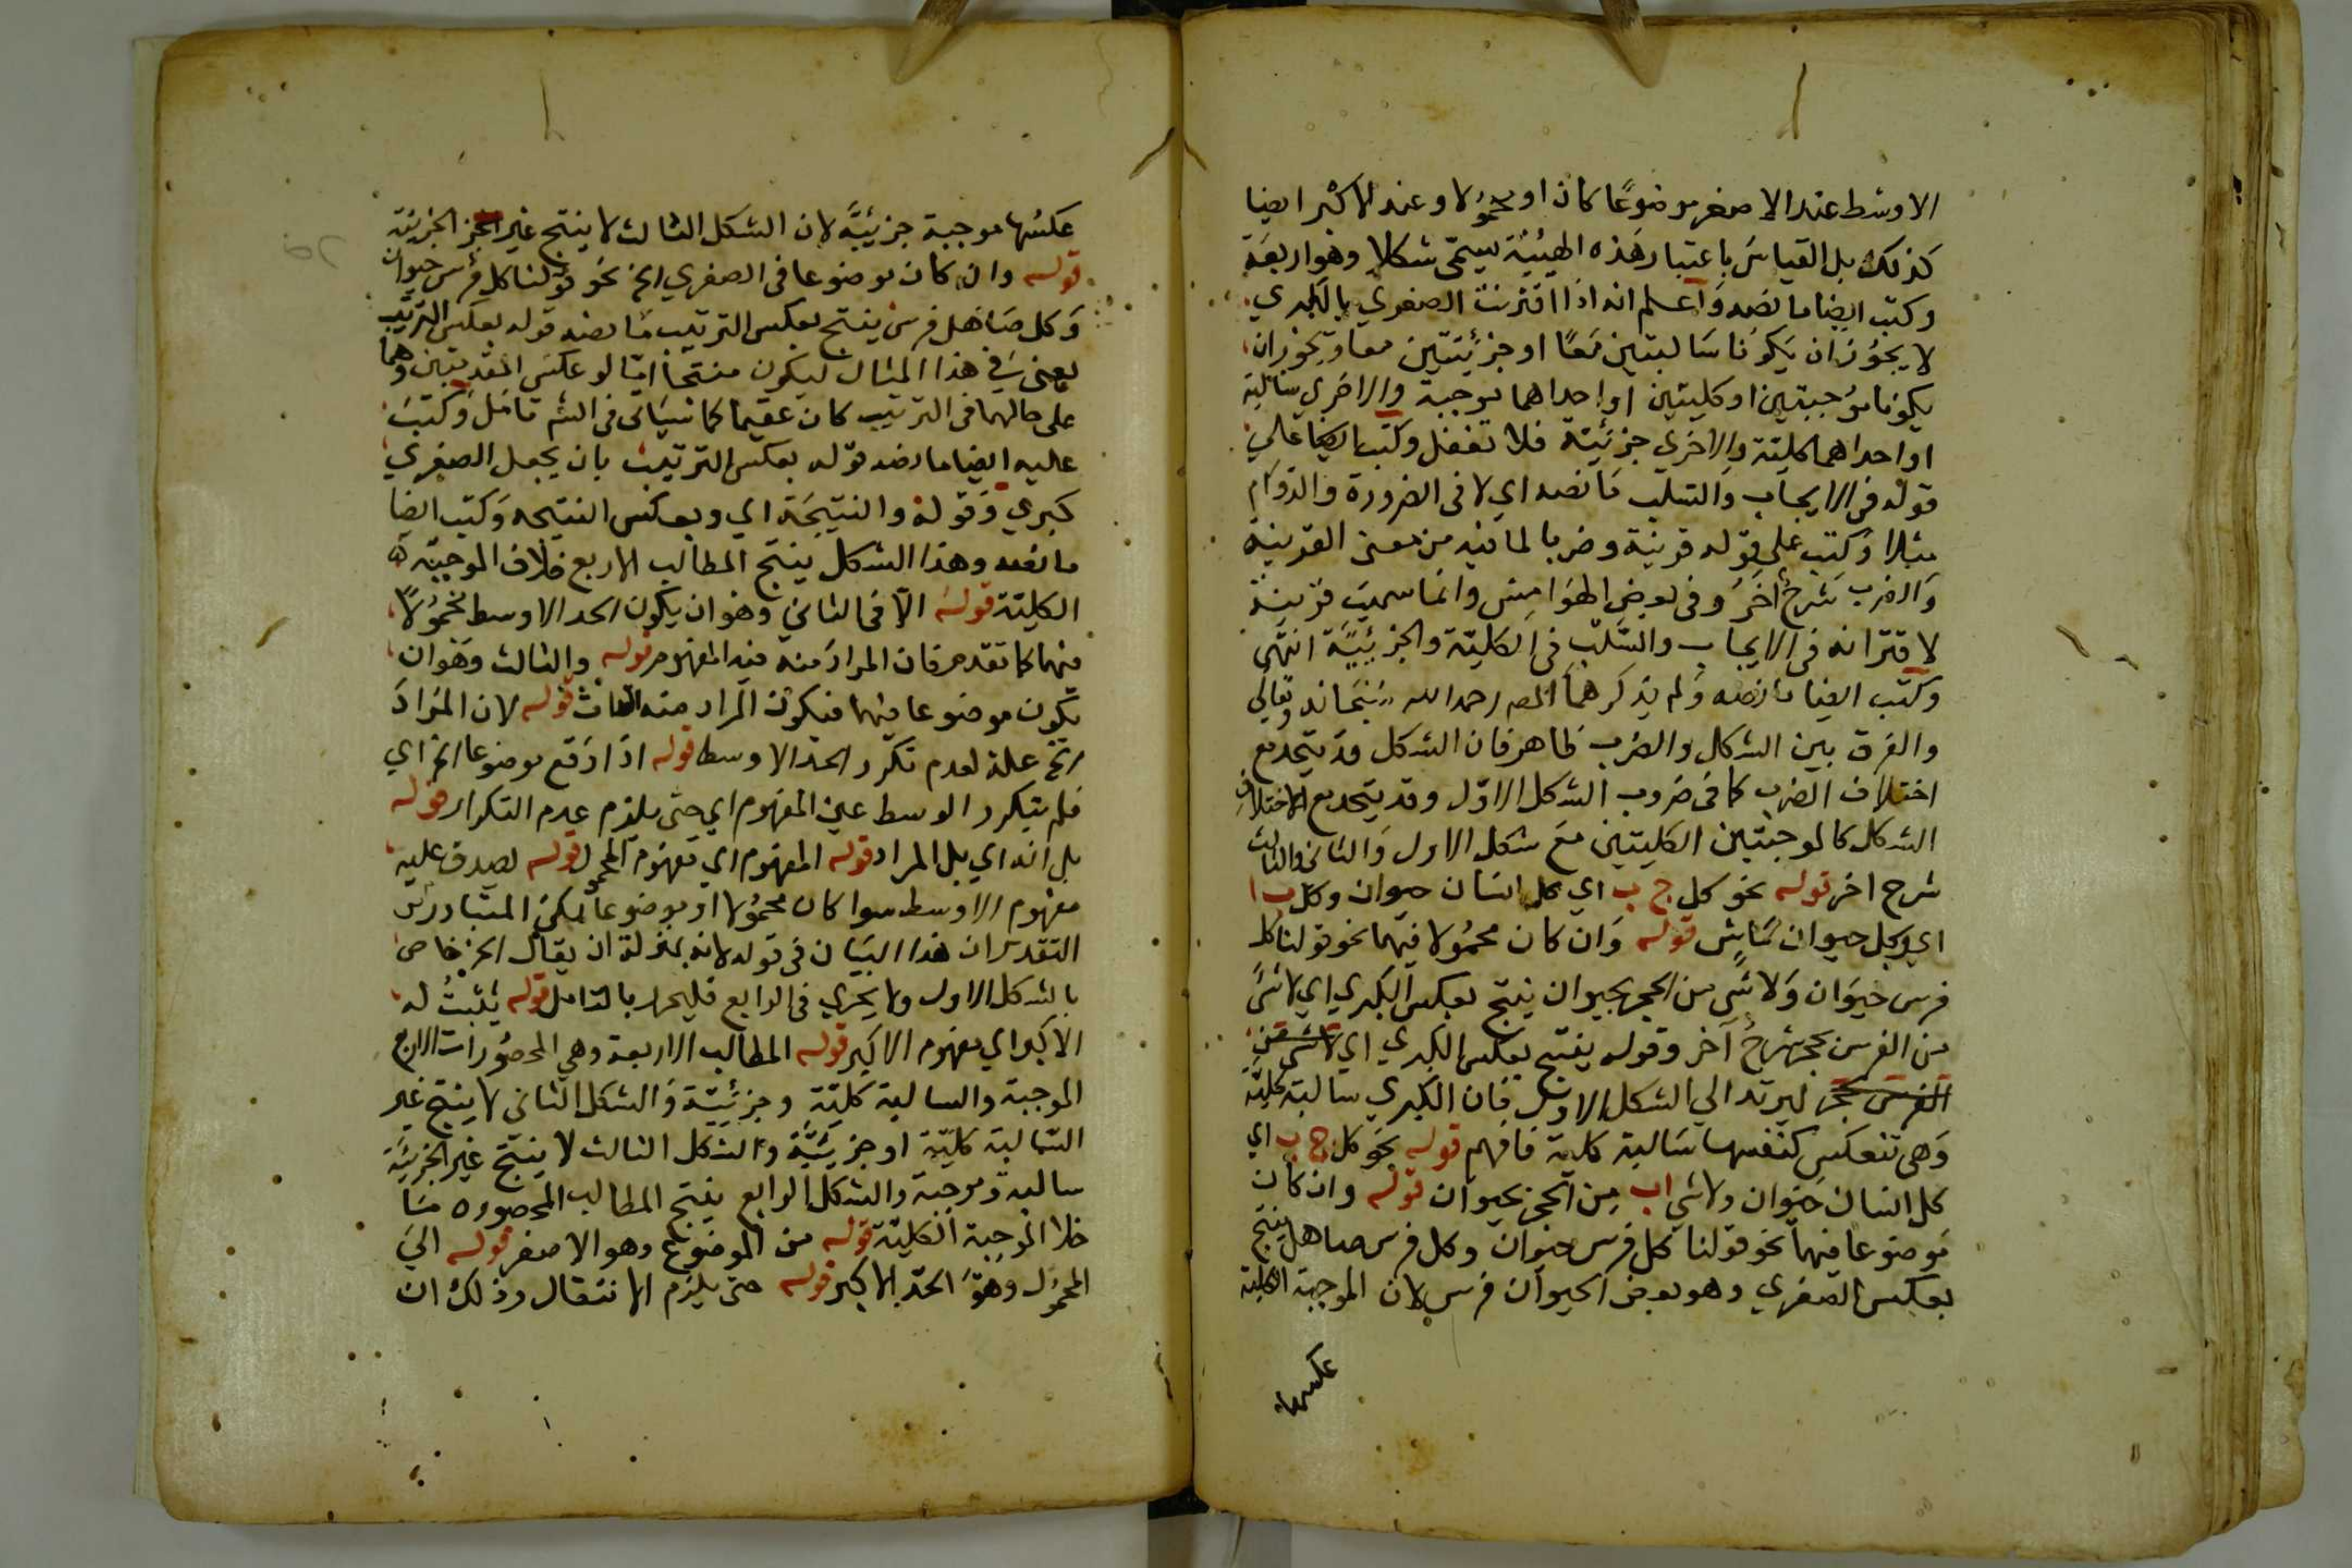 الاوسط عند الاصغر موضوعًا كان او محمولا وعند الاكبر ايضا
كذلك بل القياس باعتبار هذه الهيئة يسمى شكلا وهو اربعة
وكتب ايضا ما نصه واعلم انه اذا اقترنت الصغري بالكبري
لا يجوز ان يكونا سالبتين معًا او جزئيتين معا ويجوز ان
يكونا موجبتين او كليتين او احداهما موجبة والاخري سالبة
او احداهما كلية والاخري جزئية فلا تغفل وكتب ايضا علي
قوله في الايجاب والسلب ما نصه اي لا في الضرورة والدوام
مثلا وكتب علي قوله قرينة وضربا لما فيه من معنى القرينة
والضرب شرح اخر وفي بعض الهوامش وانما سميت قرينة
لاقترانه في الايجاب والسلب في الكلية والجزئية انتهى
وكتب ايضا ما نصه ولم يذكرهما المص رحمه الله سبحانه وتعالي
والفرق بين الشكل والضرب ظاهر فان الشكل قد يتحد مع
اختلاف الضرب كما في ضروب الشكل الاول وقد يتحد مع الاختلاف
الشكل كالموجبتين الكليتين مع شكل الاول والثاني والثالث
شرح اخر قوله نحو كل ج ب اي كل انسان حيوان وكل ب ا
اي وكل حيوان ماش قوله وان كان محمولا فيهما نحو قولنا كل
فرس حيوان ولا شي من الحجر بحيوان ينتج بعكس الكبري اي لا شي
من الفرس بحجر شرح آخر وقوله ينتج بعكس الكبري اي لا شي من
الفرس بحجر ليرتد الي الشكل الاول فان الكبري سالبة كلية
وهي تنعكس كنفسها سالبة كلية فافهم قوله نحو كل ج ب اي
كل انسان حيوان ولا شي ا ب من الحجر بحيوان قوله وان كان
موضوعا فيهما نحو قولنا كل فرس حيوان وكل فرس صاهل ينتج
بعكس الصغري وهو بعض الحيوان فرس لان الموجبة الكلية
عكسها
عكسها موجبة جزئية لان الشكل الثالث لا ينتج غير الجز الجزئية
قوله وان كان موضوعا في الصغري الخ نحو قولنا كل فرس حيوان
وكل صاهل فرس ينتج بعكس الترتيب ما نصه قوله بعكس الترتيب
يعني في هذا المثال ليكون منتجا اما لو عكس المقدمتين وهما
على حالهما في الترتيب كان عقيما كما سياتى في الش تامل وكتب
عليه ايضا ما نصه قوله بعكس الترتيب بان يجعل الصغري
كبري وقوله والنتيجة اي وبعكس النتيجه وكتب ايضا
ما نصه وهذا الشكل ينتج المطالب الاربع خلاف الموجبة
الكلية قوله الا في الثاني وهو ان يكون الحد الاوسط محمولا
فيهما كما تقدم فان المراد منه فيه المفهوم قوله والثالث وهو ان
يكون موضوعا فيهما فيكون المراد منه الذات قوله لان المراد
الخ علة لعدم تكرر الحد الاوسط قوله اذا وقع موضوعا الخ اي
فلم يتكرر الوسط عين المفهوم اي حتى يلزم عدم التكرار قوله
بل انه اي بل المراد قوله المفهوم اي مفهوم المحمول قوله يصدق عليه
مفهوم الاوسط سوا كان محمولا او موضوعا لكن المتبادر من
التقدير ان هذا البيان في قوله لانه بمنزلة ان يقال الخ خاص
بالشكل الاول ولا يجري في الرابع فليحرر بالتامل قوله يثبت له
الاكبر اي مفهوم الاكبر قوله المطالب الاربعة وهي المحصورات الاربع
الموجبة والسالبة كلية وجزئية والشكل الثاني لا ينتج غير
السالبة كلية او جزئية والشكل الثالث لا ينتج غير الجزئية
سالبة وموجبة والشكل الرابع ينتج المطالب المحصوره ما
خلا الموجبة الكلية قوله من الموضوع وهو الاصغر قوله الي
المحمول وهو الحد الاكبر قوله حتى يلزم الانتقال وذلك ان